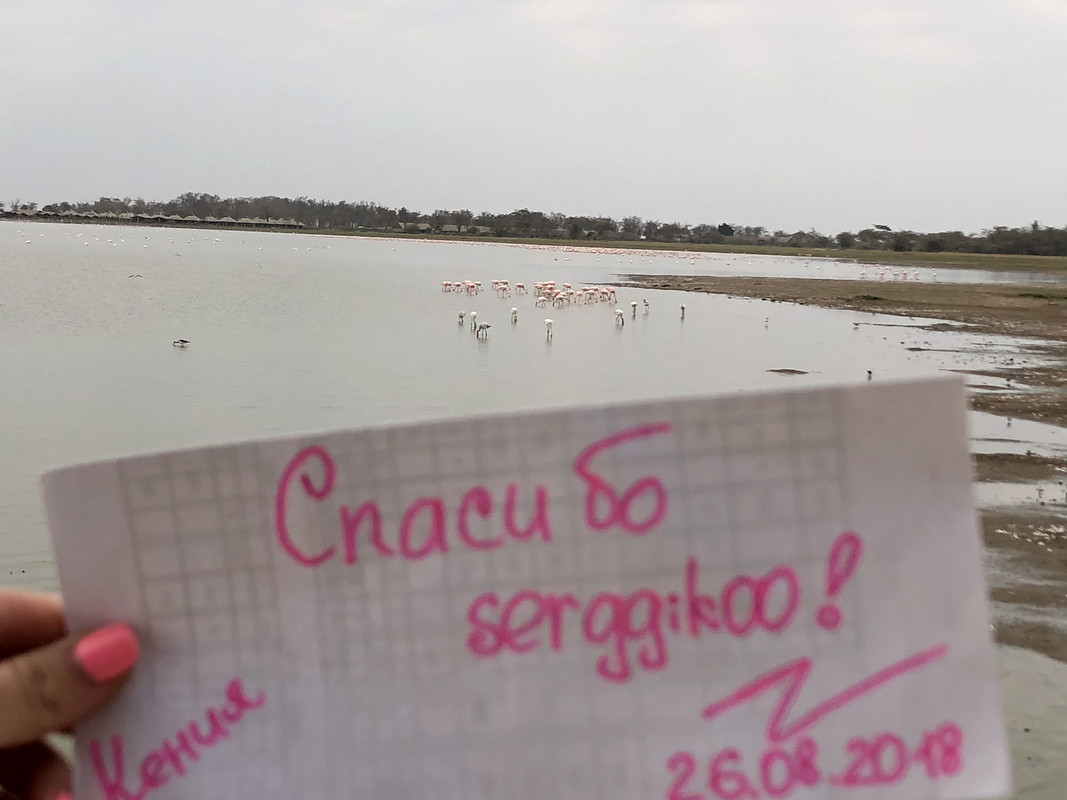 Спасибо
serggikoo!
Кения
26.08.2018